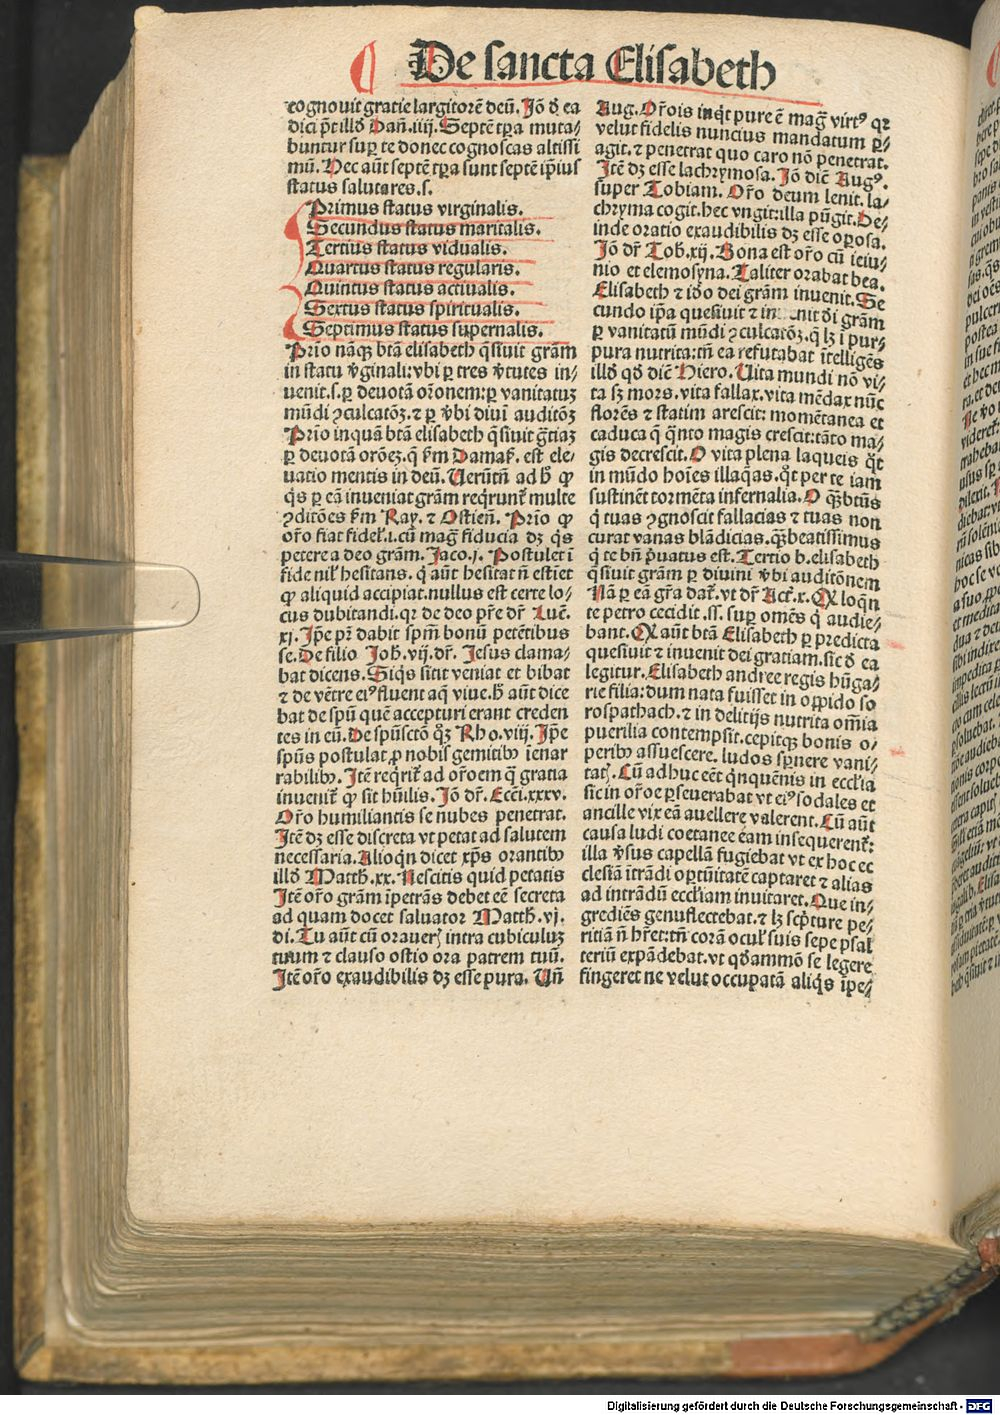 De sancta Elisabeth
cognouit gratie largitorē deū. Jō ð ea
dici p̄t illð Dañ.iiij. Septē tꝑa muta⸗
buntur suꝑ te donec cognoscas altissi
mū. Hec aūt septē tꝑa sunt septē ip̄ius
status salutares.s.
Primus status virginalis.
Secundus status maritalis.
Tertius status vidualis.
Quartus status regularis.
Quintus status actiualis.
Sextus status spiritualis.
Septimus status supernalis.
Prīo nāqꝫ btā elisabeth q̄siuit grām
in statu v̄ginali:vbi ꝑ tres v̄tutes in⸗
uenit.s.ꝑ deuotā or̄onem:ꝑ vanitatuꝫ
mūdi ꝯculcatōꝫ.⁊ ꝑ v̄bi diuī auditōꝫ
Prīo inquā btā elisabeth q̄siuit gr̄tiaꝫ
ꝑ deuotā orōeꝫ.q̄ ẜm Damaẜ. est ele⸗
uatio mentis in deū. Uerūtñ ad ħ ꝙ
q̇s ꝑ eā inueniat grām req̇runt᷑ multe
ꝯditōes ẜm Ray. ⁊ Ostieñ. Prīo ꝙ
or̄o fiat fidel̕.i.cū mag̃ fiducia dꝫ q̇s
petere a deo grām. Jaco.j. Postulet ī
fide nil̕ hesitans. q̇ aūt hesitat ñ estiet
ꝙ aliquid accipiat.nullus est certe lo⸗
cus dubitandi.qꝛ de deo pr̄e dr̄ Luč.
xj. Jp̄e pr̄ dabit spm̄ bonū petētibus
se. De filio Joh̄.vij.dr̄. Jesus clama⸗
bat dicens. Siq̇s sitit veniat et bibat
⁊ de vētre eiꝰ fluent aq̄ viue.ħ aūt dice
bat de spū quē accepturi erant creden
tes in eū. De spūsctō q̇ꝫ Rho.viij. Jp̄e
spūs postulat ꝓ nobis gemitibꝰ īenar
rabilibꝰ. Jtē req̇rit᷑ ad or̄oem q̄ gratia
inuenit᷑ ꝙ sit hūilis. Jō dr̄. Ecc̄i.xxxv.
Or̄o humiliantis se nubes penetrat.
Jtē dꝫ esse discreta vt petat ad salutem
necessaria. Alioq̇n dicet xp̄s orantibꝰ
illð Matth̄.xx. Nescitis quid petatis
Jtē or̄o grām īpetrās debet eē secreta
ad quam docet saluator Matth̄.vj.
di. Tu aūt cū oraueꝝ intra cubiculuꝫ
tuum ⁊ clauso ostio ora patrem tuū.
Jtē or̄o exaudibilis dꝫ esse pura. Uñ
Aug. Or̄ois inq̇t pure ē mag̃ virtꝰ qꝛ
velut fidelis nuncius mandatum ꝑ⸗
agit.⁊ penetrat quo caro nō penetrat.
Jtē dꝫ esse lachrymosa. Jō dič Augꝰ.
super Tobiam. Or̄o deum lenit. la⸗
chryma cogit.hec vngit:illa pūgit. De⸗
inde oratio exaudibilis dꝫ esse oꝑosa.
Jō dr̄ Tob.xij. Bona est or̄o cū ieiu⸗
nio et elemosyna. Taliter orabat bea.
Elisabeth ⁊ iðo dei grām inuenit. Se
cundo ip̄a quesiuit ⁊ in enit ði grām
ꝑ vanitatū mūdi ꝯculcatōꝫ.q̄ lꝫ ī pur⸗
pura nutrita:tñ ea refutabat ītelligēs
illð qð dič Hiero. Uita mundi nō vi⸗
ta sꝫ mors.vita fallax.vita mēdax nūc
florēs ⁊ statim arescit: momētanea et
caduca q̄ q̇nto magis crescit:tāto ma⸗
gis decrescit. O vita plena laqueis q̇t
in mūdo hoīes illaq̄as.q̇t per te iam
sustinēt tormēta infernalia. O q̄ꝫbtūs
q̇ tuas ꝯgnoscit fallacias ⁊ tuas non
curat vanas blādicias.q̄ꝫbeatissimus
q̇ te bñ p̄uatus est. Tertio b.elisabeth
q̄siuit grām ꝑ diuini v̄bi auditōnem
Nā ꝑ eā gr̄a dat᷑.vt dr̄ Act᷑.x. Qꝛ loq̄ñ
te petro cecidit.ss. suꝑ omēs q̇ audie⸗
bant. Qꝛ aūt btā Elisabeth ꝑ predicta
quesiuit ⁊ inuenit dei gratiam.sic ð ea
legitur. Elisabeth andree regis hūga⸗
rie filia:dum nata fuisset in oppido so
rospathach.⁊ in delitijs nutrita om̄ia
puerilia contempsit.cepitqꝫ bonis o⸗
peribꝰ assuescere. ludos sꝑnere vani⸗
tatꝭ. Cū adhuc eēt q̇nquēnis in eccl̄ia
sic in or̄oe ꝑseuerabat vt eiꝰ sodales et
ancille vix eā auellere valerent. Cū aūt
causa ludi coetanee eam insequerent᷑:
illa v̄sus capellā fugiebat vt ex hoc ec
clesiā ītrādi oꝑtūitatē captaret ⁊ alias
ad intrādū eccl̄iam inuitaret. Que in⸗
grediēs genuflectebat.⁊ lꝫ scp̄ture pe⸗
ritiā ñ hr̄et:tñ corā ocul̕ suis sepe psal
teriū expādebat.vt qðammō se legere
fingeret ne velut occupatā aliq̇s īpe⸗